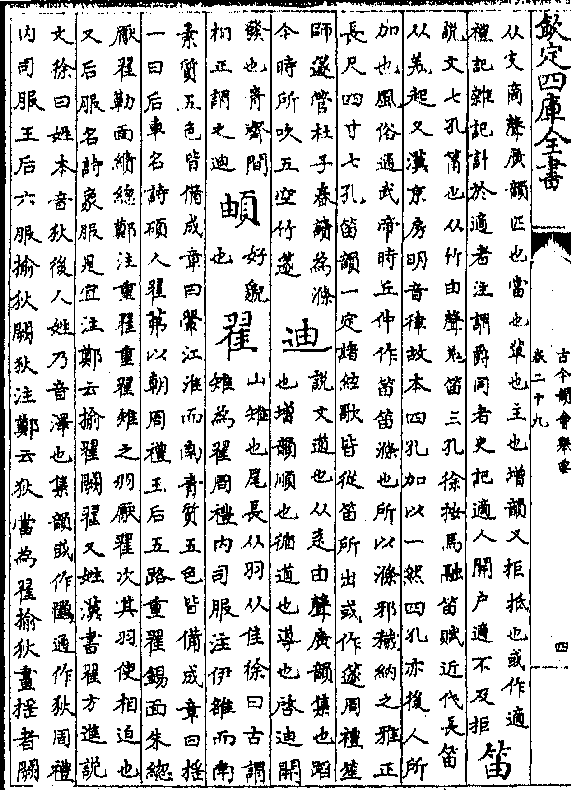 欽定四庫全書
古今韻會舉要
卷二十九
四
从文商聲廣韻匹也當也輩也主也增韻又拒抵也或作適
禮記雜記計於適者注謂爵同者史記適人開户適不及拒
笛
説文七孔筩也从竹由聲羌笛三孔徐按馬融笛賦近代長笛
从羌起又漢京房明音律故本四孔加以一然四孔亦後人所
加也風俗通武帝時丘仲作笛笛滌也所以滌邪穢納之雅正
長尺四寸七孔笛韻一定諸絃歌皆從笛所出或作篴周禮笙
師篴管杜子春讀為滌
今時所吹五空竹篴
迪
説文道也从辵由聲廣韻集也蹈
也增韻順也循道也導也啓迪開
發也青齊間
相正謂之迪
頔
好貌
也
翟
山雉也尾長从羽从隹徐曰古謂
雉為翟周禮内司服注伊雒而南
素質五色皆備成章曰翬江淮而南青質五色皆備成章曰揺
一曰后車名詩碩人翟茀以朝周禮王后五路重翟錫面朱總
厭翟勒面繢總鄭注重翟重翟雉之羽厭翟次其羽使相迫也
又后服名詩象服是宜注鄭云揄翟闕翟又姓漢書翟方進説
文徐曰姓本音狄後人姓乃音澤也集韻或作通作狄周禮
内司服王后六服揄狄闕狄注鄭云狄當為翟揄狄畫揺者闕